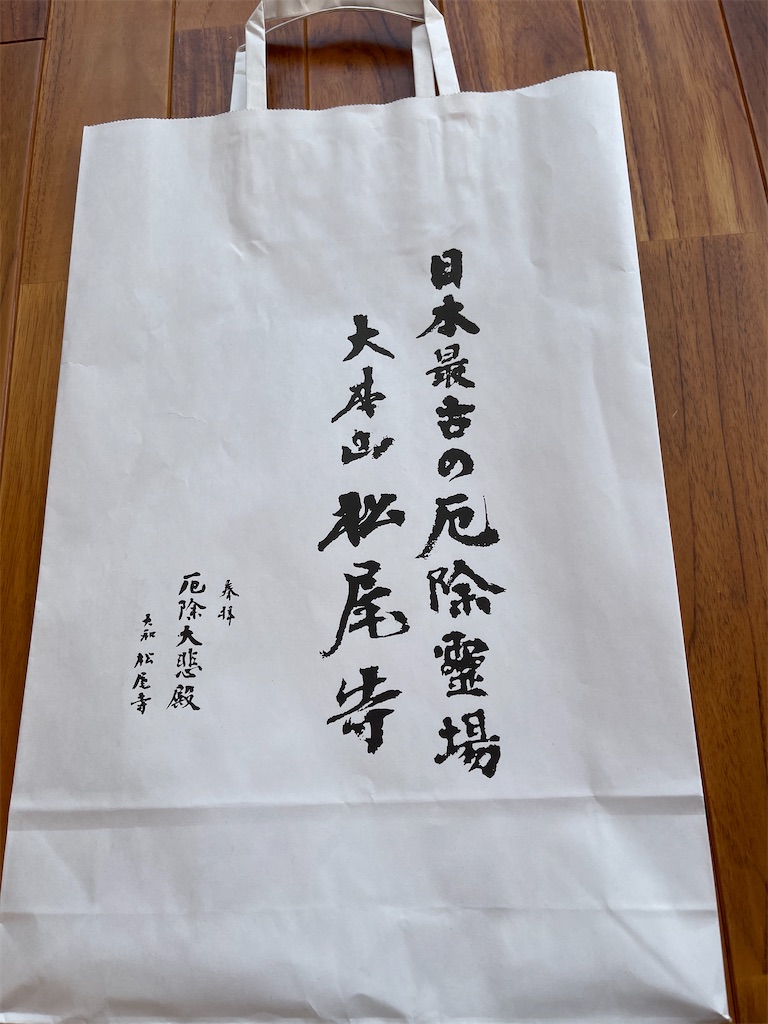 日本最古の厄除霊場
大本山 松尾寺
奉拝
厄除大悲殿
大和 松尾寺